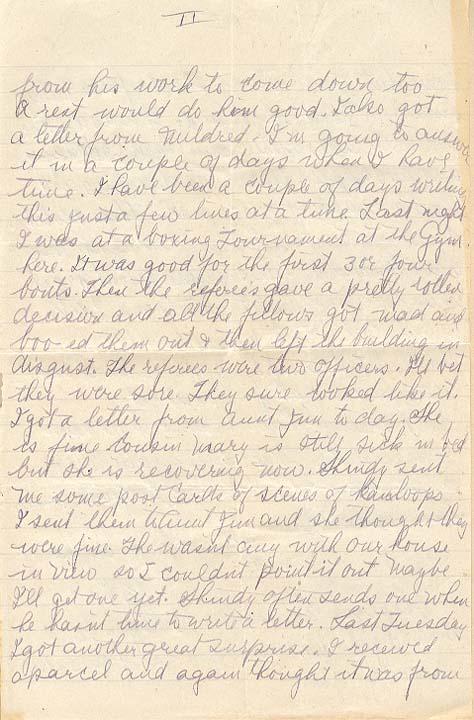 II
from his work to come down too
a rest would do him good. I also got
a letter from Mildred. I'm going to answer
it in a couple of days when I have
time. I have been a couple of days writing
this just a few lines at a time. Last night
I was at a boxing Tournament at the Gym
here. It was good for the first 3 or four
bouts. Then the referees gave a pretty rotten
decision and all the fellows got mad and
boo ed them out & then left the building in
disgust. The referees were two officers. I'll bet
they were sore. They sure looked like it.
I got a letter from aunt Jun to day. She
is fine cousin Mary is still sick in bed
but she is recovering now. Shindy sent
me some post Cards of scenes of Kamloops.
I sent them to Aunt Jun and she thought they
were fine. The wasnt any with our house
in view so I couldn't point it out maybe
I'll get one yet. Shindy often sends one when
he hasn't time to write a letter. Last Tuesday
I got another great surprise. I received
a parcel and again thought it was from